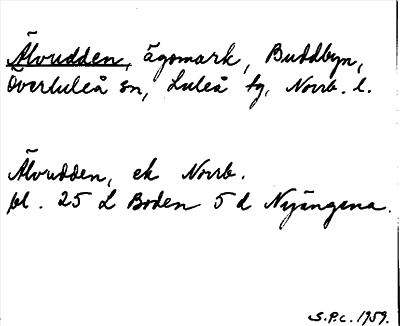 Älvudden, ägomark, Buddbyn,
Överluleå sn, Luleå tg, Norrb. l.
Älvudden, ek Norrb.
bl. 25 L Boden 5 d Nyängena.
S.P.C. 1959.